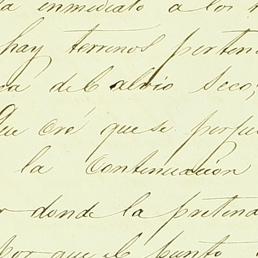 a inmediato a los
hay terrenos perten
ca del alvio Seco;
Que cré que se perju
la Continuacion
r donde la pretend
Por que el punto